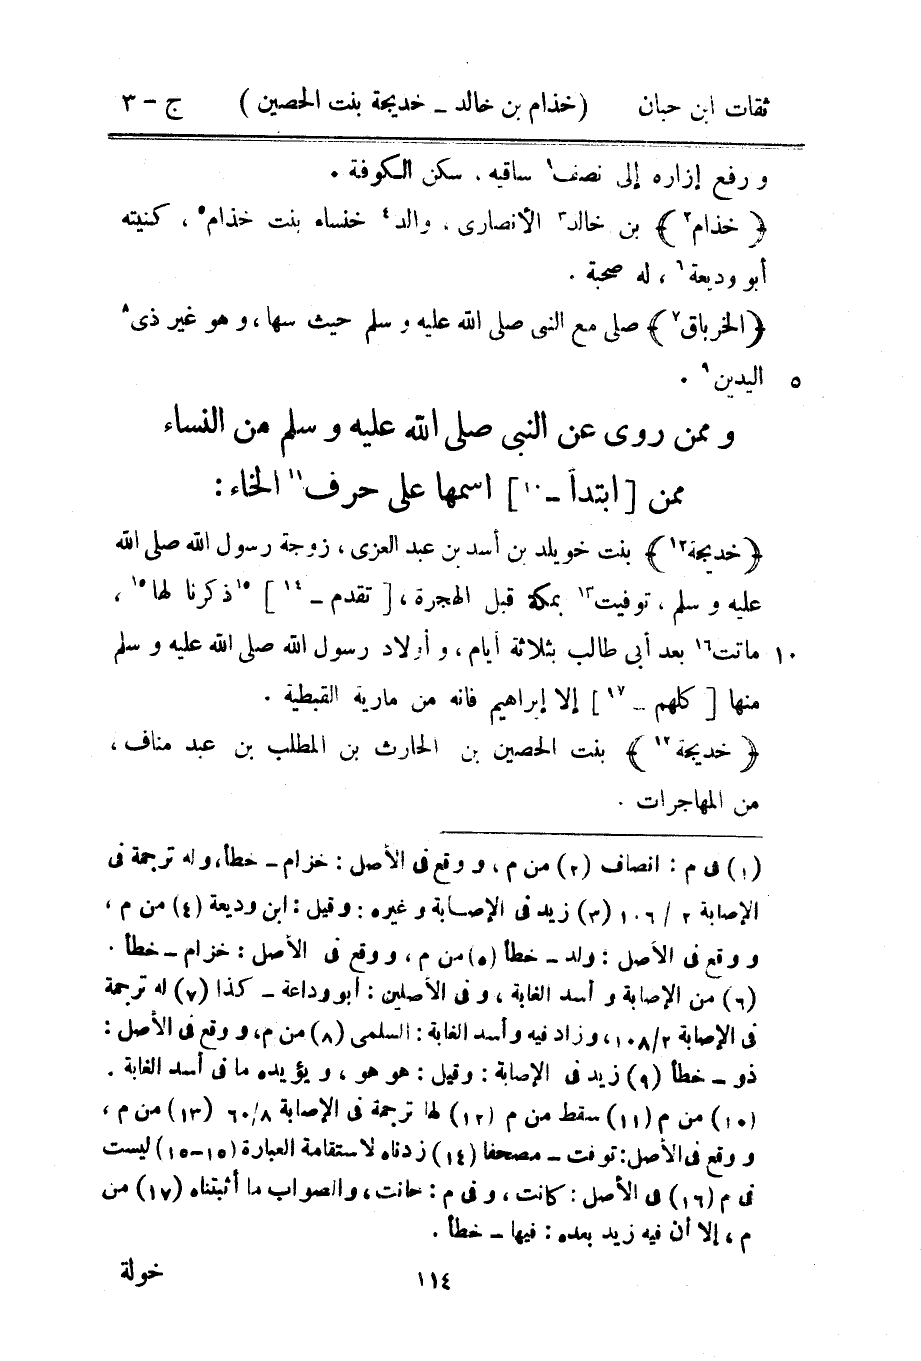 ثقات ابن حبان (خذام بن خالد ــ خديجة بنت الحصين) ج - ٣
و رفع إزاره إلى نصف١ ساقيه . سكن الكوفة .
﴿ خذام٢ ﴾ بن خالد٣ الأنصارى ، والد٤ خنساء بنت خذام٥ ، كنيته
أبو وديعة٦ ، له صحبة .
﴿الخرباق٧﴾ صلى مع النبى صلى الله عليه و سلم حيث سها ، و هو غير ذى٨
٥ اليدين٩ .
و ممن روى عن النبى صلى الله عليه و سلم من النساء
ممن [ ابتدأ ــ١٠ ] اسمها على حرف١١ الخاء :
﴿ خديجة١٢ ﴾ بنت خويلد بن أسد بن عبد العزى ، زوجة رسول الله صلى الله
عليه و سلم ، توفيت١٣ بمكة قبل الهجرة ، [ تقدم ــ١٤ ] ١٥ذكرنا لها١٥ ،
١٠ ماتت١٦ بعد أبى طالب بثلاثة أيام ، و أولاد رسول الله صلى الله عليه و سلم
منها [ كلهم ــ١٧ ] إلا إبراهيم فانه من مارية القبطية .
﴿ خديجة١٢ ﴾ بنت الحصين بن الحارث بن المطلب بن عبد مناف ،
من المهاجرات .
(١) فى م : انصاف (٢) من م ، و وقع فى الأصل : خزام ــ خطأ، وله ترجمة فى
الإصابة ٢ / ١٠٦ (٣) زيد فى الإصابة و غيره : وقيل : ابن وديعة (٤) من م ،
و وقع فى الأصل : ولد ــ خطأ (٥) من م ، و وقع فى الأصل : خزام ــ خطأ .
(٦) من الإصابة و أسد الغابة ، و فى الأصلين : أبو وداعة ــ كذا (٧) له ترجمة
فى الإصابة ١٠٨/٢، و زاد فيه و أسد الغابة : السلمى (٨) من م، و وقع فى الأصل :
ذو ــ خطأ (٩) زيد فى الإصابة : وقيل : هو هو ، و يؤيده ما فى أسد الغابة .
(١٠) من م (١١) سقط من م (١٢) لها ترجمة فى الإصابة ٦٠/٨ (١٣) من م ،
و وقع فى الأصل: توفت ــ مصحفا (١٤) زدناه لاستقامة العبارة (١٥-١٥) ليست
فى م (١٦) فى الأصل : كانت ، و فى م : حانت ، والصواب ما أثبتناه (١٧) من
م ، إلا أن فيه زيد بعده : فيها ــ خطأ .
١١٤ خولة